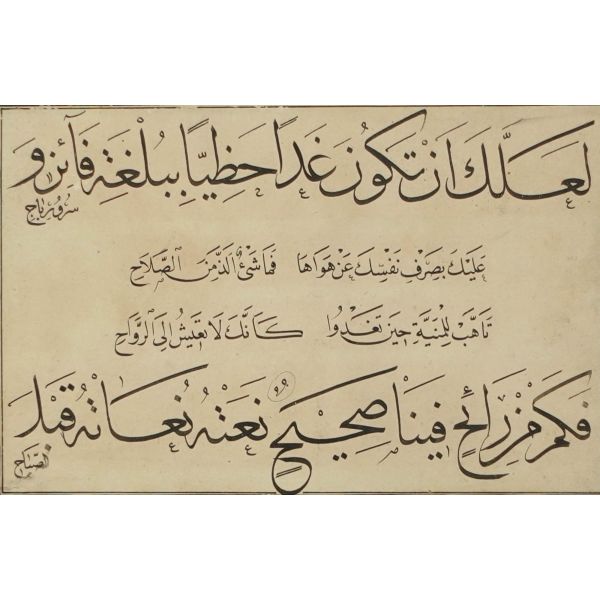 لَعَلَّكَ اَنْ تَكُونَ غَدًا حَظِيًّا بِبُلْغَةِ فَآئِزٍ وَ سُرُورِ نَاجٍ
عَلَيْكَ بِصَرْفِ نَفْسِكَ عَنْ هَوَاهَا فَمَا شَئٌ اَلَذُّ مِنَ الصَّلَاحِ
تَاَهَّبْ لِلْمَنِيَّةِ حِينَ تَغْدُوا كَاَنَّكَ لَا تَعِيشُ اِلَى الرَّوَاحِ
فَكَمْ مِنْ رَائِحٍ فِينَا صَحِيحٍ نَعَتْهُ نُعَاتُهُ قَبْلَ الصَّبَاحِ